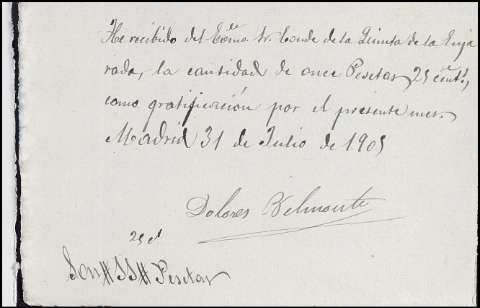 He recibido del Exᵐᵒ Sr. Conde de la Quinta de la Enja
rada, la cantidad de once Pesetas 25 centˢ,
como gratificación por el presente mes.
Madrid 31 de Julio de 1905
Dolores Belmonte
25 cˢ
Son #11# Pesetas